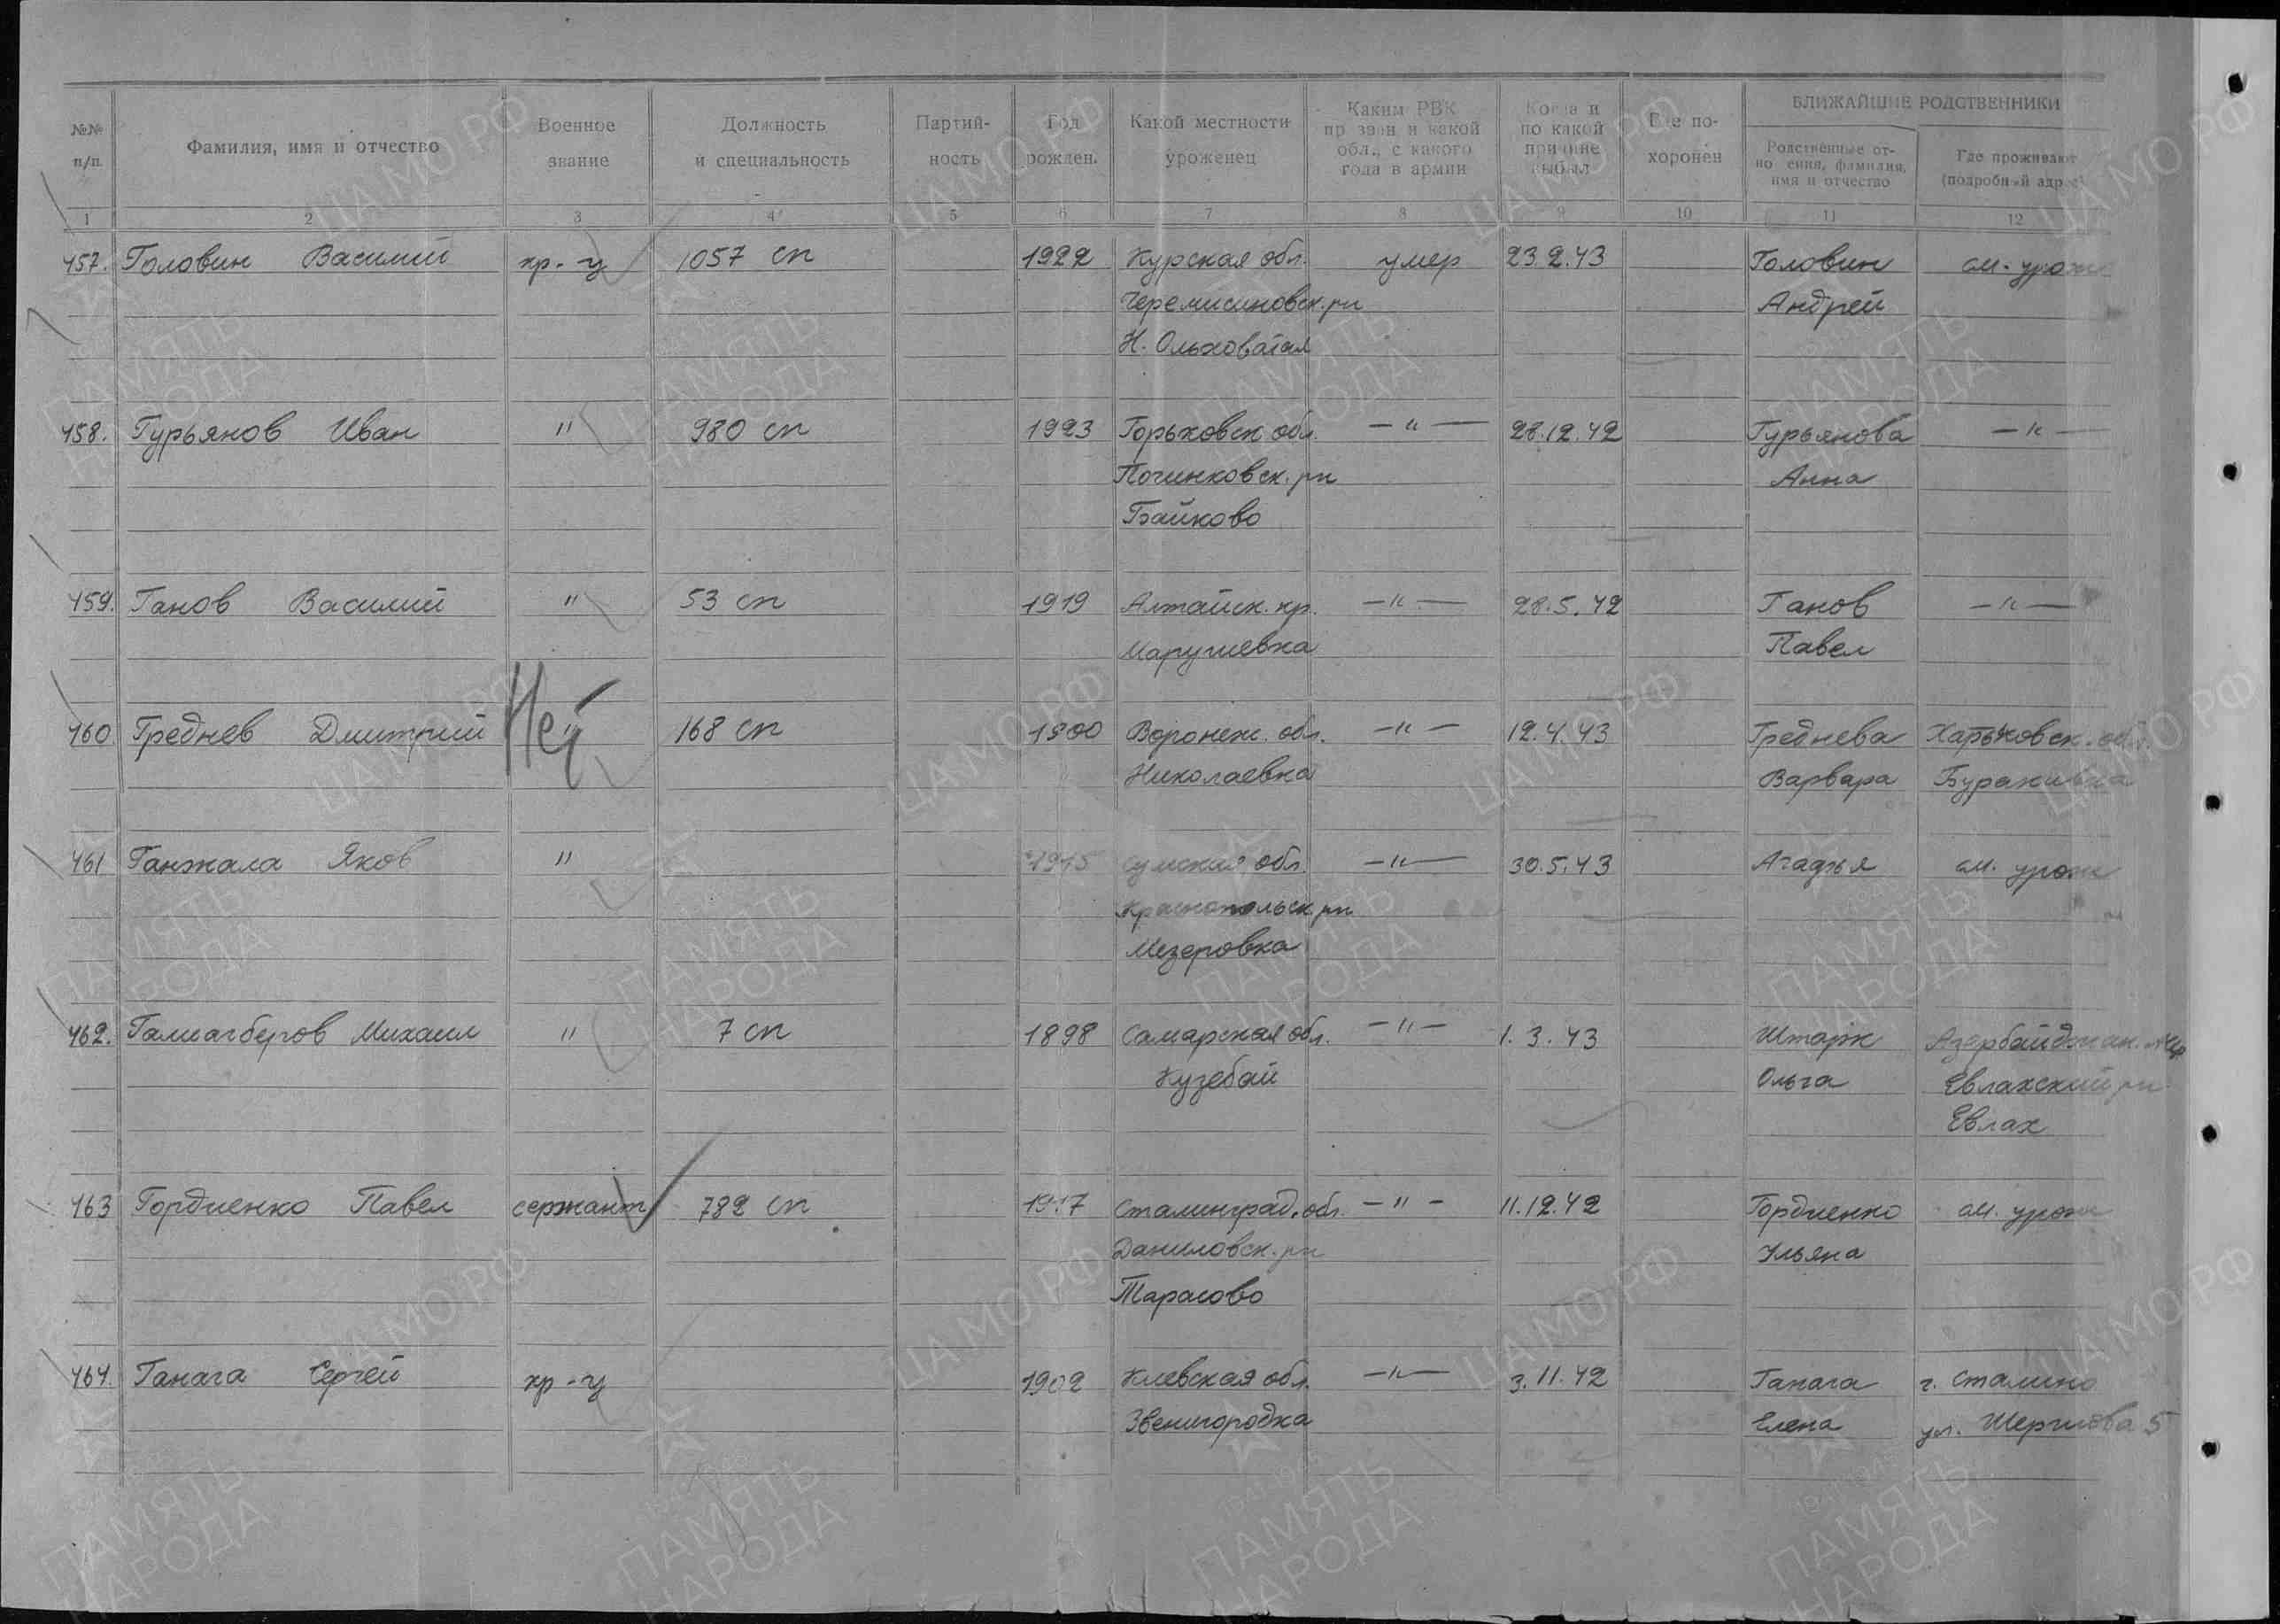 №№ п/п. Фамилия, имя и отчество Военное звание Должность и специальность Партий-ность Год рожден. Какой местности уроженец Каким РВК призван и какой обл., с какого года в армии Когда и по какой причине выбыл Где по-хоронен БЛИЖАЙШИЕ РОДСТВЕННИКИ
Родственные от-ношения, фамилия, имя и отчество Где проживают (подробный адрес)
1 2 3 4 5 6 7 8 9 10 11 12
457. Головин Василий кр-ц 1057 сп 1922 Курская обл. умер 23.2.43 Головин см. урож
Черемисиновск. рн Андрей
Н. Ольховатая
458. Гурьянов Иван " 980 сп 1923 Горьковск обл. —"— 28.12.42 Гурьянова —"—
Починковск. рн Анна
Байково
459. Ганов Василий " 53 сп 1919 Алтайск. кр. —"— 28.5.42 Ганов —"—
Марушевка Павел
460 Греднев Дмитрий " Нет 168 сп 1900 Воронеж. обл. —"— 12.4.43 Греднева Харьковск. обл.
Николаевка Варвара
461 Ганжала Яков " 1915 Сумская обл. —"— 30.5.43 Агадья см. урож
Краснопольск рн
Мезеровка
462. Галиагберов Михаил " 7 сп 1898 Самарская обл. —"— 1.3.43 Штарк Азербайджан.
Кузебай Ольга Евлахский рн
Евлах
463 Гордиенко Павел сержант 782 сп 1917 Сталинград. обл. —"— 11.12.42 Гордиенко см. урож
Даниловск. рн Ульяна
Тарасово
464. Ганага Сергей кр-ц 1902 Киевская обл. —"— 3.11.42 Ганага г. Сталино
Звенигородка Елена ул. 5
ЦАМО РФ
ПАМЯТЬ НАРОДА